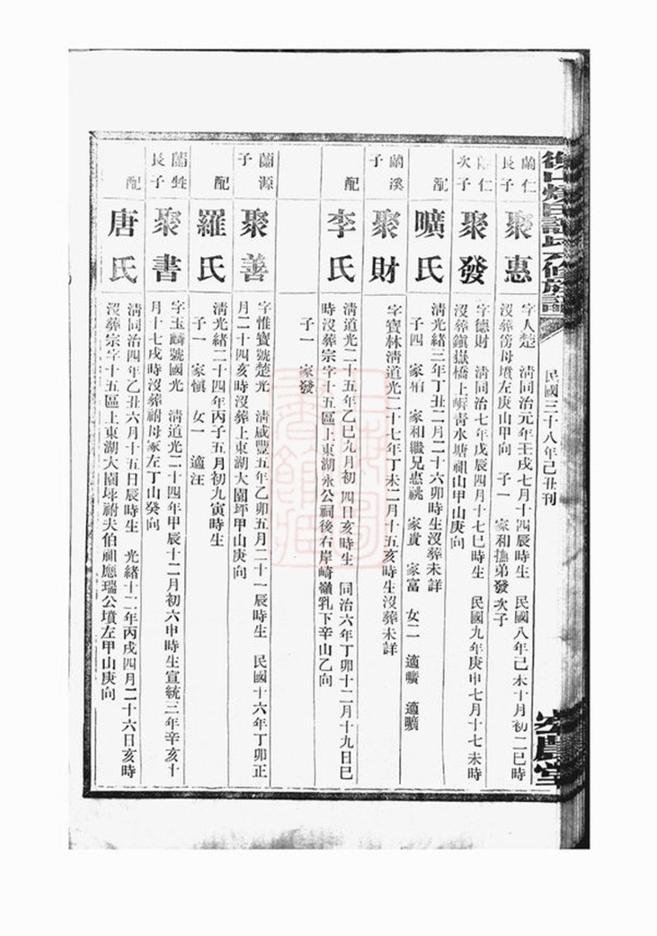 民國三十八年己丑刊
蘭仁長子
聚惠
字人楚 清同治元年壬戌七月十四辰時生 民國八年己未十月初二巳時
沒葬傍母墳左庚山甲向 子一 家和撫弟發次子
仁次子
聚發
字德財 清同治七年戊辰四月十七巳時生 民國九年庚申七月十七未時
沒葬鎮嶽橋上 青水塘祖山甲山庚向
配
曠氏
清光緒三年丁丑二月二十六卯時生沒葬未詳
子四 家 家和繼兄惠祧 家貴 家富 女二 適曠 適曠
蘭溪子
聚財
字寶林清道光二十七年丁未二月十五亥時生沒葬未詳
配
李氏
清道光二十五年乙巳九月初四日亥時生 同治六年丁卯十二月十九日巳
時沒葬宗字十五區上東湖永公祠後右岸崎嶺乳下辛山乙向
子一 家發
蘭源子
聚善
字惟寶號楚光 清咸豐五年乙卯五月二十一辰時生 民國十六年丁卯正
月二十四亥時沒葬上東湖大園坪甲山庚向
配
羅氏
清光緒二十四年丙子五月初九寅時生
子一 家慎 女一 適汪
蘭甡長子
聚書
字玉麟號國光 清道光二十四年甲辰十二月初六申時生宣統三年辛亥十
月十七戌時沒葬祔母冢左丁山癸向
配
唐氏
清同治四年乙丑六月十五日辰時生 光緒十二年丙戌四月二十六日亥時
沒葬宗字十五區上東湖大園坪祔夫伯祖應瑞公墳左甲山庚向